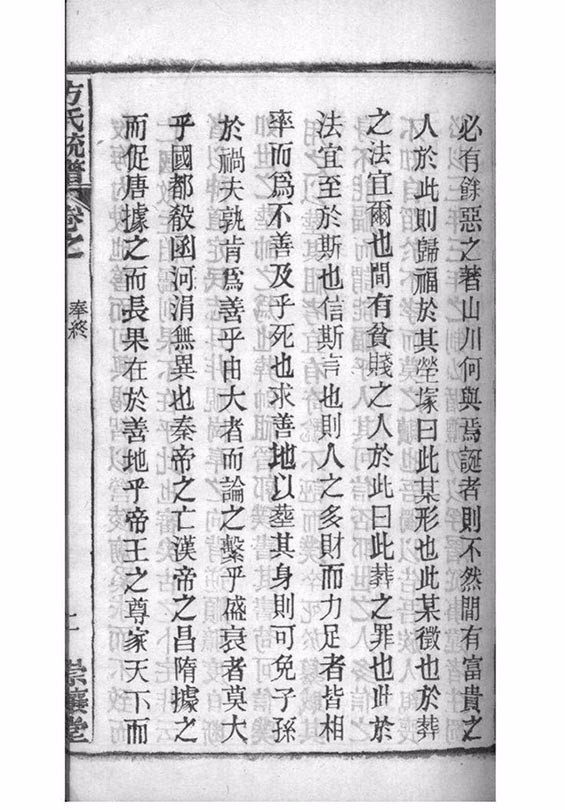 必有餘惡之著山川何與焉誕者則不然間有富貴之
人於此則歸福於其塋塚曰此某形也此某徵也於葬
之法宜爾也間有貧賤之人於此曰此葬之罪也此於
法宜至於斯也信斯言也則人之多財而力足者皆相
率而爲不善及乎死也求善地以塟其身則可免子孫
於禍夫孰肯爲善乎由大者而論之繫乎盛衰者莫大
乎國都殽函河渭無異也秦帝之亡漢帝之昌隋據之
而促唐據之而長果在於善地乎帝王之尊家天下而
方氏統譜 卷之 奉終 崇讓堂